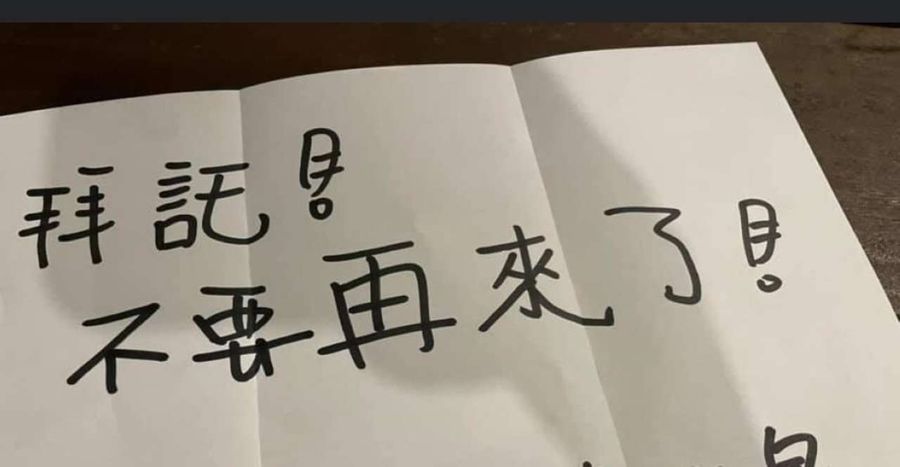 拜託!
不要再來了!